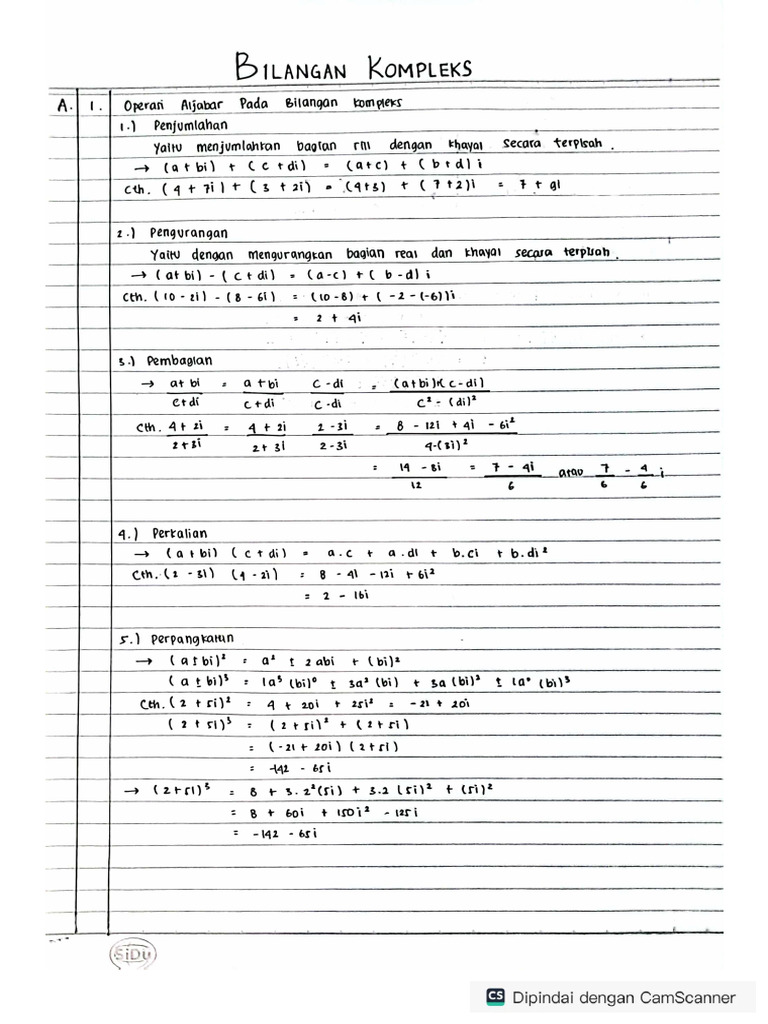 BILANGAN KOMPLEKS
A. 1. Operasi Aljabar Pada Bilangan Kompleks
1.) Penjumlahan
Yaitu menjumlahkan bagian riil dengan khayal secara terpisah.
→ (a + bi) + (c + di) = (a+c) + (b+d) i
Cth. (4 + 7i) + (3 + 2i) = (4+3) + (7+2)i = 7 + 9i
2.) Pengurangan
Yaitu dengan mengurangkan bagian real dan khayal secara terpisah.
→ (a+bi) - (c+di) = (a-c) + (b-d) i
Cth. (10 - 2i) - (8 - 6i) = (10-8) + (-2-(-6))i
= 2 + 4i
3.) Pembagian
→ a+bi/c+di = a+bi/c+di c-di/c-di = (a+bi)(c-di)/c² - (di)²
Cth. 4+2i/2+3i = 4+2i/2+3i 2-3i/2-3i = 8 - 12i + 4i - 6i²/4-(3i)²
= 14 - 8i/12 = 7 - 4i/6 atau 7/6 - 4/6 i
4.) Perkalian
→ (a+bi) (c+di) = a.c + a.di + b.ci + b.di²
Cth. (2 - 3i) (4 - 2i) = 8 - 4i - 12i + 6i²
= 2 - 16i
5.) Perpangkatan
→ (a±bi)² = a² ± 2abi + (bi)²
(a±bi)³ = 1a³ (bi)⁰ ± 3a² (bi) + 3a (bi)² ± 1a⁰ (bi)³
Cth. (2 + 5i)² = 4 + 20i + 25i² = -21 + 20i
(2 + 5i)³ = (2 + 5i)² + (2 + 5i)
= (-21 + 20i) (2+5i)
= -142 - 65i
→ (2+5i)³ = 8 + 3.2²(5i) + 3.2 (5i)² + (5i)²
= 8 + 60i + 150i² - 125i
= -142 - 65i
SiDU
CS Dipindai dengan CamScanner